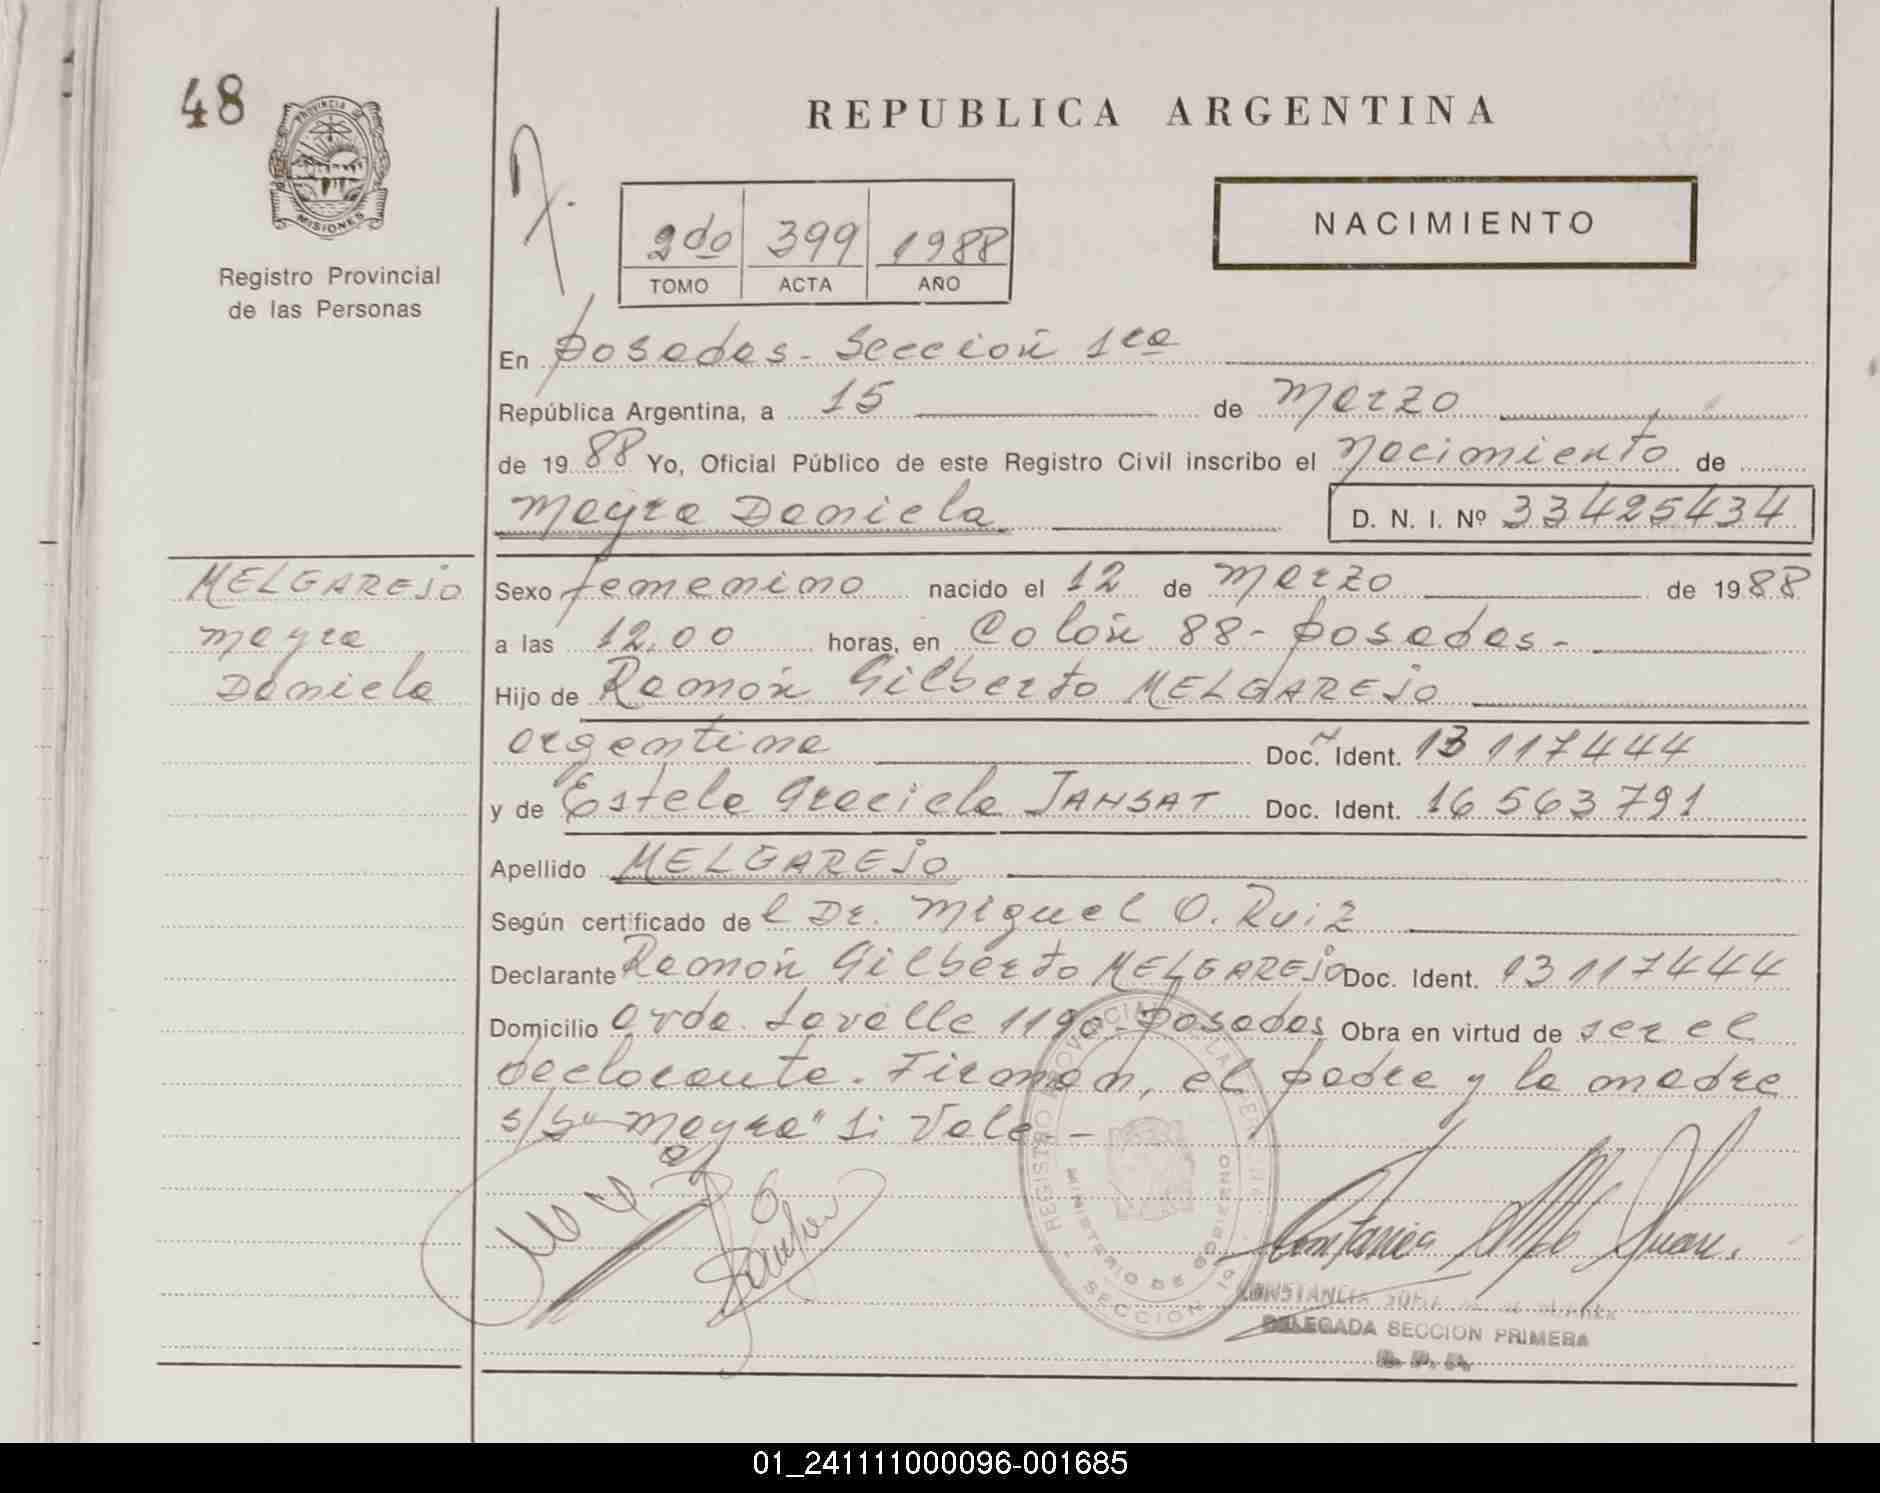 48
PROVINCIA DE
MISIONES
Registro Provincial
de las Personas
REPUBLICA ARGENTINA
NACIMIENTO
2do 399 1988
TOMO ACTA AÑO
En Posadas - Sección 1ra
República Argentina, a 15 de Marzo
de 1988 Yo, Oficial Público de este Registro Civil inscribo el Nacimiento de
Mayra Daniela D. N. I. Nº 33425434
MELGAREJO
Mayra
Daniela
Sexo femenino nacido el 12 de Marzo de 1988
a las 12,00 horas, en Colón 88 - Posadas -
Hijo de Ramón Gilberto MELGAREJO
argentina Doc. Ident. 13 117444
y de Estela Graciela JANSAT Doc. Ident. 16 563 791
Apellido MELGAREJO
Según certificado de l Dr. Miguel O. Ruiz
Declarante Ramón Gilberto MELGAREJO Doc. Ident. 13 117444
Domicilio Avda. Lavalle 1190 - Posadas Obra en virtud de ser el
declarante. Firman, el padre y la madre
s/b "Mayra" Si Vale -
REGISTRO PROVINCIAL DE LAS PERSONAS
MINISTERIO DE GOBIERNO
SECCION 1ª
CONSTANCIA
DELEGADA SECCION PRIMERA
R. P. P.
01_241111000096-001685